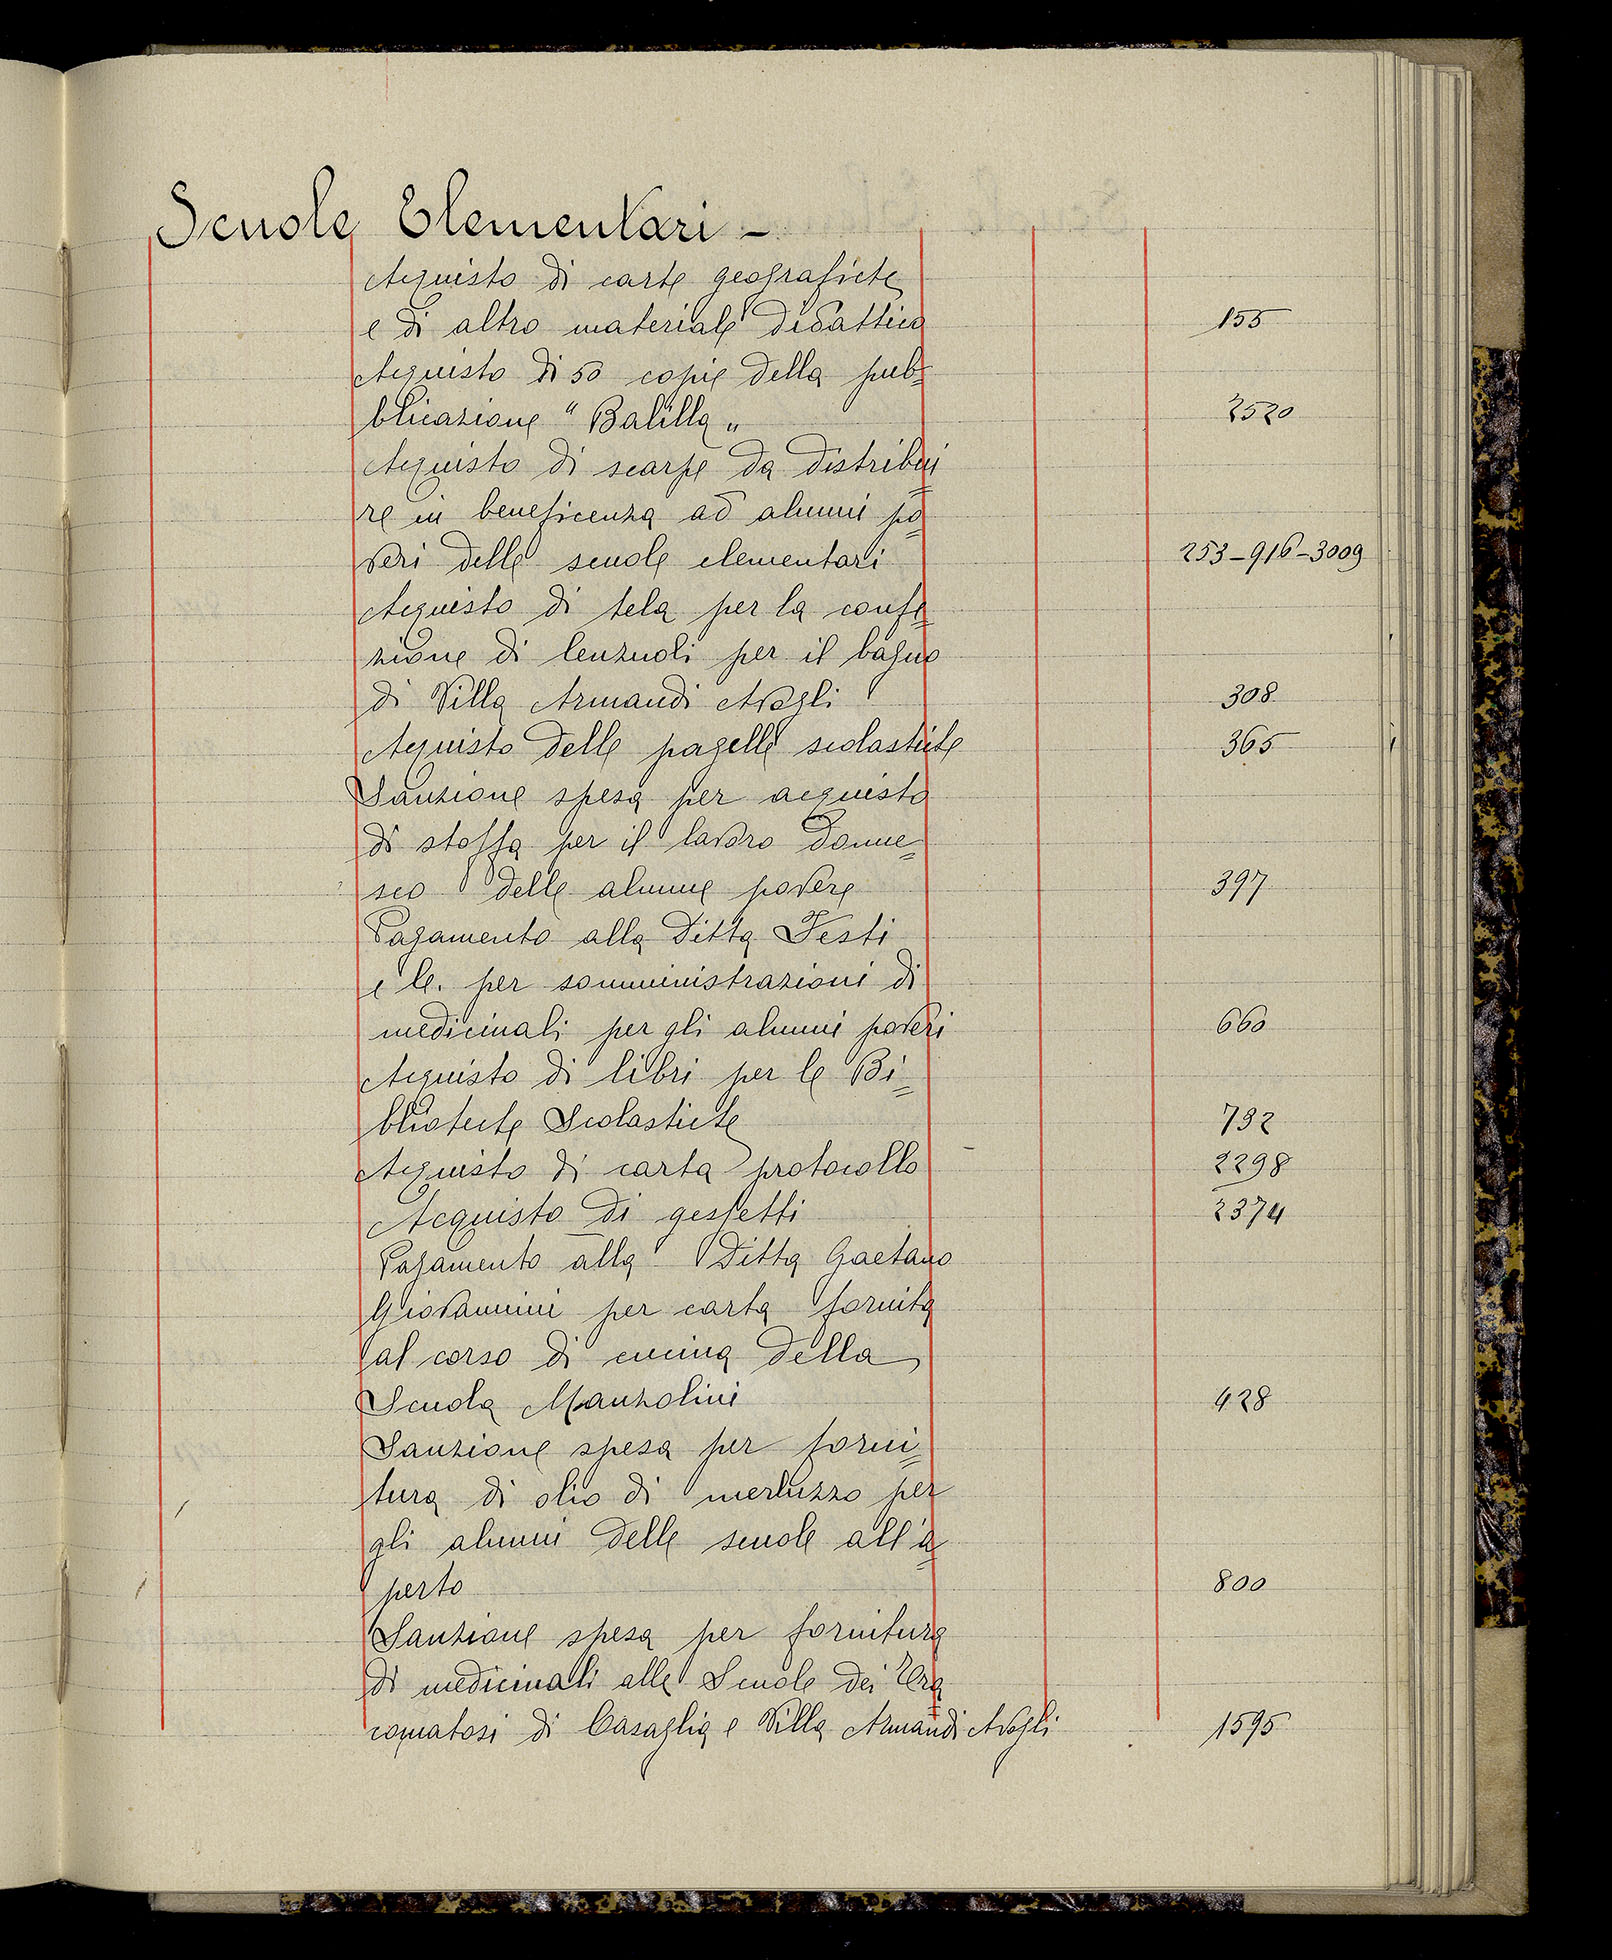 Scuole Elementari -
Acquisto di carte geografiche
e di altro materiale didattico 155
Acquisto di 50 copie della pub=
blicazione "Balilla" 2520
Acquisto di scarpe da distribui=
re in beneficenza ad alunni po=
veri delle scuole elementari 253-916-3009
Acquisto di tela per la confe=
zione di lenzuoli per il bagno
di Villa Armandi Avogli 308
Acquisto delle pagelle scolastiche 365
Sanzione spesa per acquisto
di stoffa per il lavoro donne=
sco delle alunne povere 397
Pagamento alla Ditta Festi
e C. per somministrazioni di
medicinali per gli alunni poveri 660
Acquisto di libri per le Bi=
blioteche Scolastiche 732
Acquisto di carta protocollo 2298
Acquisto di gessetti 2374
Pagamento alla Ditta Gaetano
Giovannini per carta fornita
al corso di cucina della
Scuola Manzolini 428
Sanzione spesa per forni=
tura di olio di merluzzo per
gli alunni delle scuole all'a=
perto 800
Sanzione spesa per fornitura
di medicinali alle Scuole dei Tra=
comatosi di Casaglia e Villa Armandi Avogli 1595